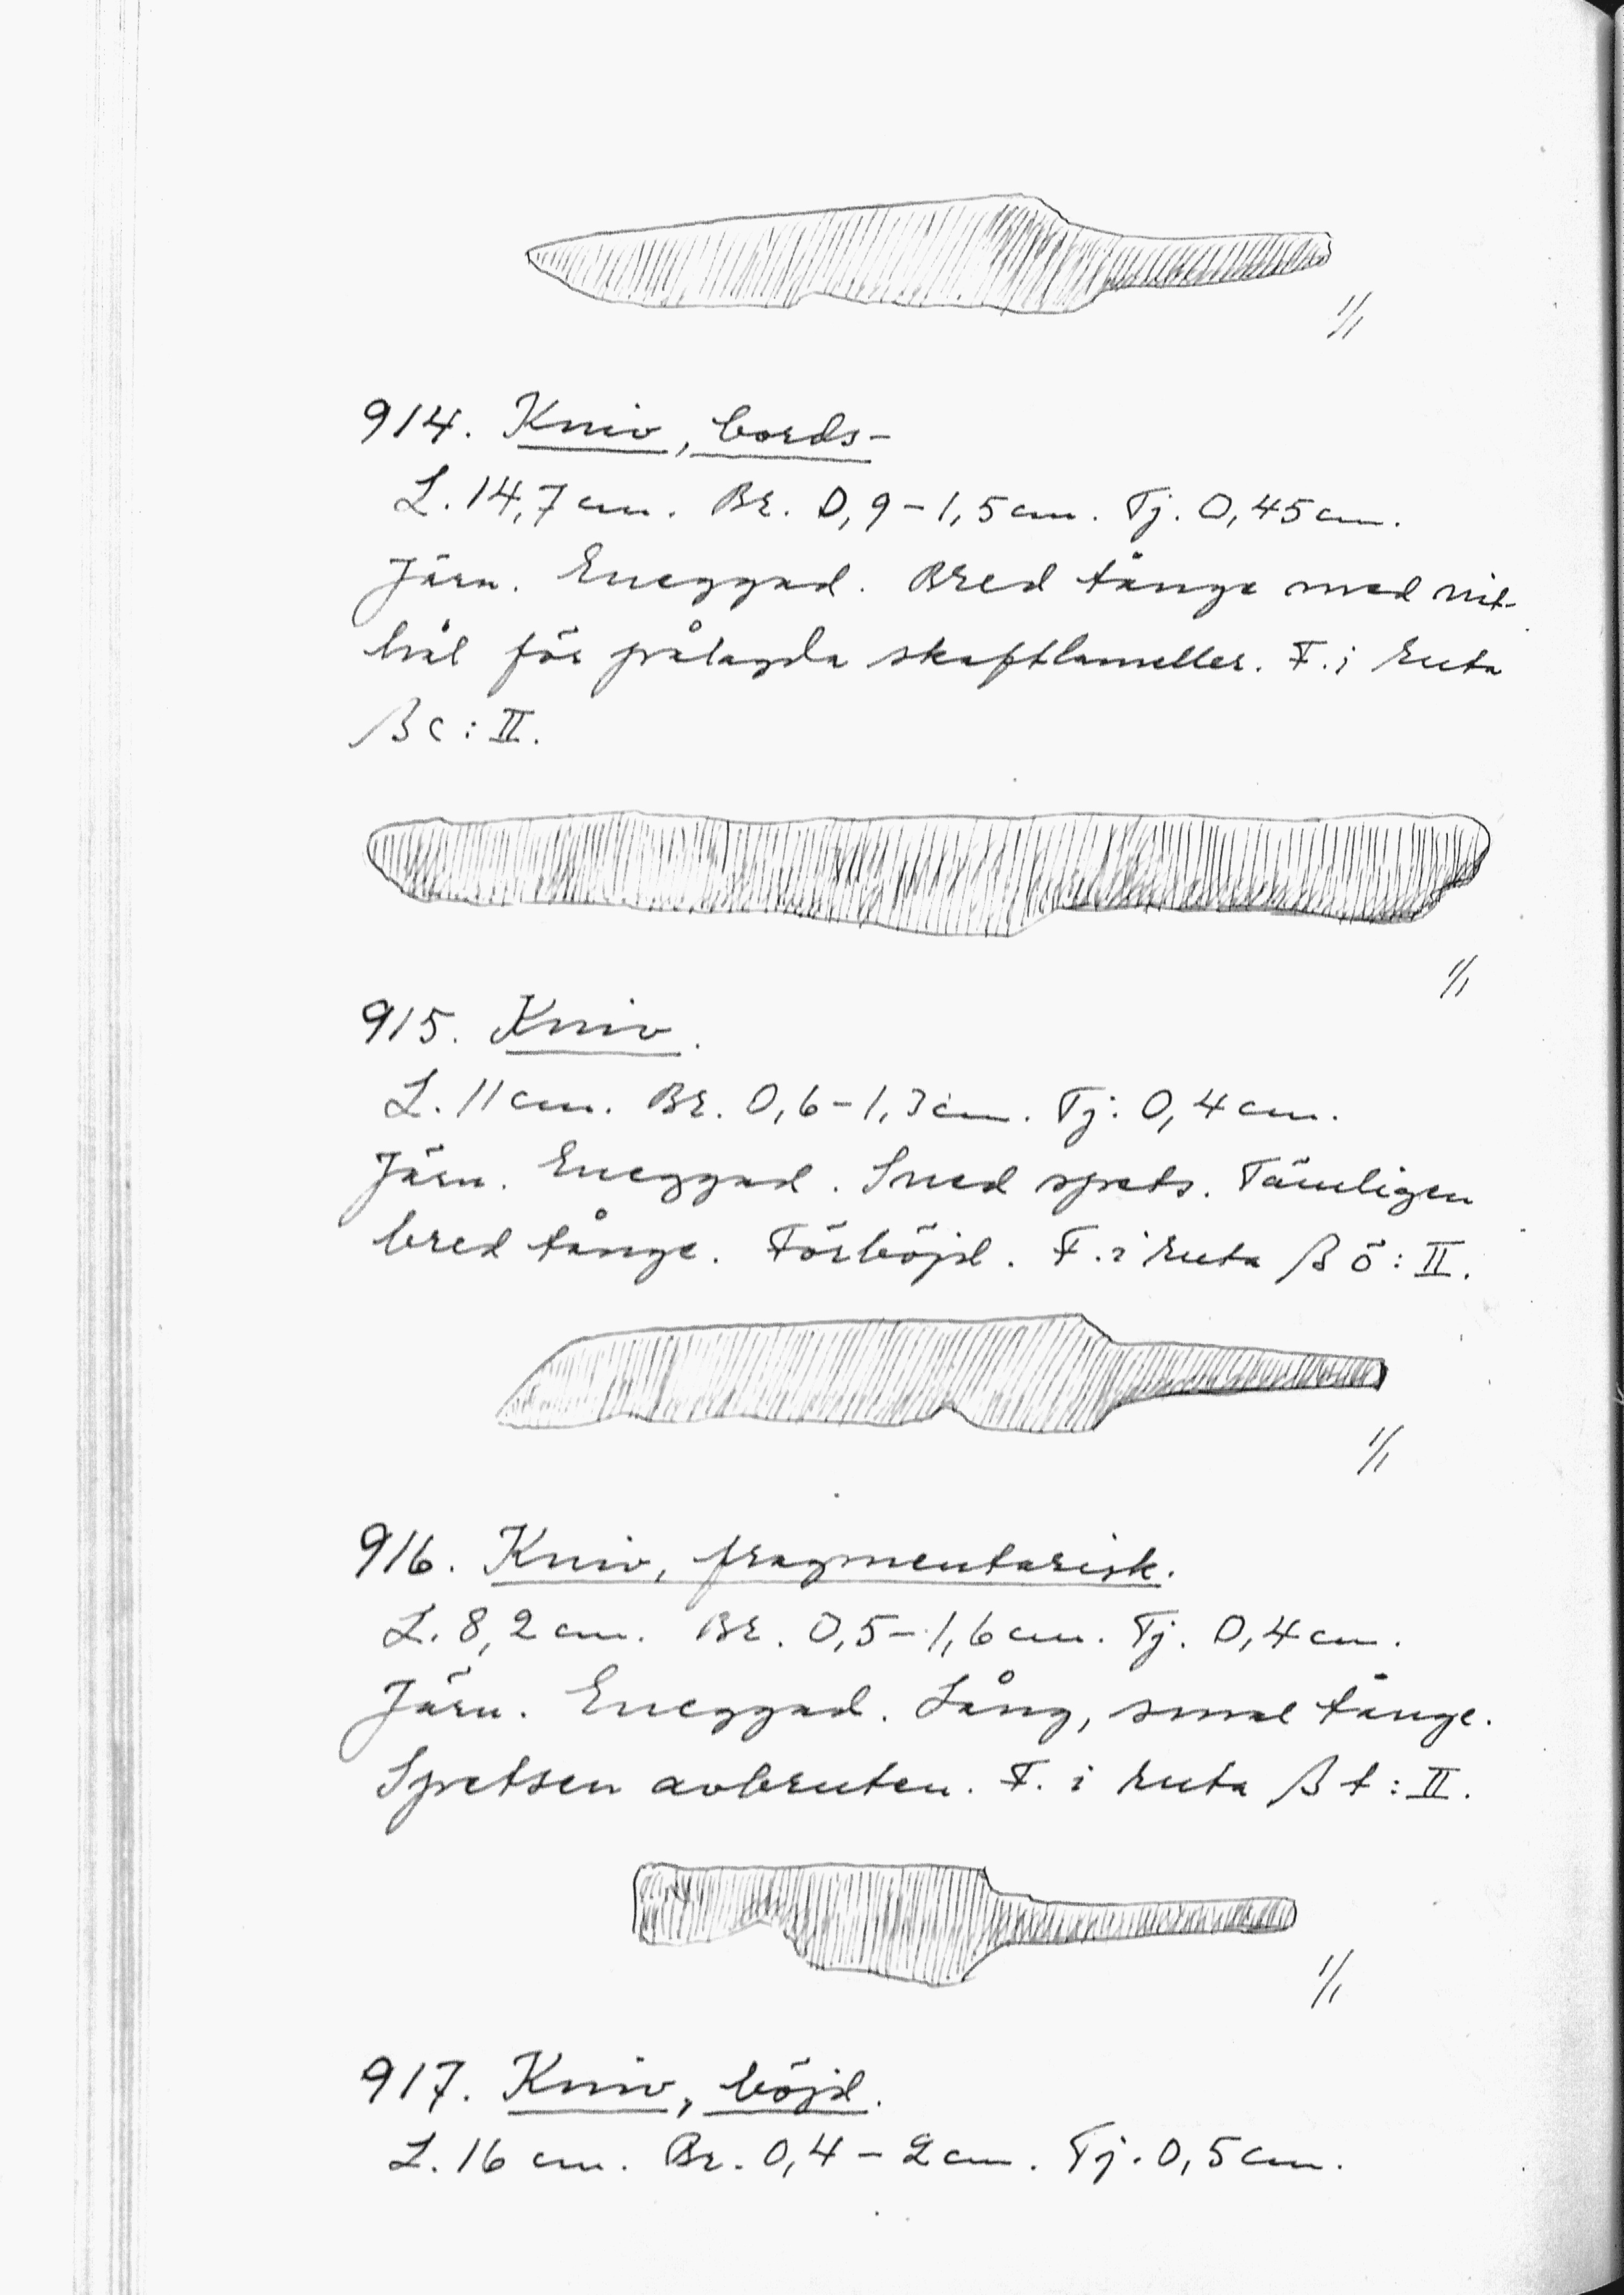 1/1
914. Kniv, bords-
L. 14,7 cm. Br. 0,9-1,5 cm. Tj. 0,45 cm.
Järn. Eneggad. Bred tånge med nit-
hål för pålagda skaftlameller. F. i ruta
βc:II.
1/1
915. Kniv.
L. 11 cm. Br. 0,6-1,3 cm. Tj: 0,4 cm.
Järn. Eneggad. Sned spets. Tämligen
bred tånge. Förböjd. F. i ruta βö:II.
1/1
916. Kniv, fragmentarisk.
L. 8,2 cm. Br. 0,5-1,6 cm. Tj. 0,4 cm.
Järn. Eneggad. Lång, smal tånge.
Spetsen avbruten. F. i ruta βt:II.
1/1
917. Kniv, böjd.
L. 16 cm. Br. 0,4-2 cm. Tj. 0,5 cm.